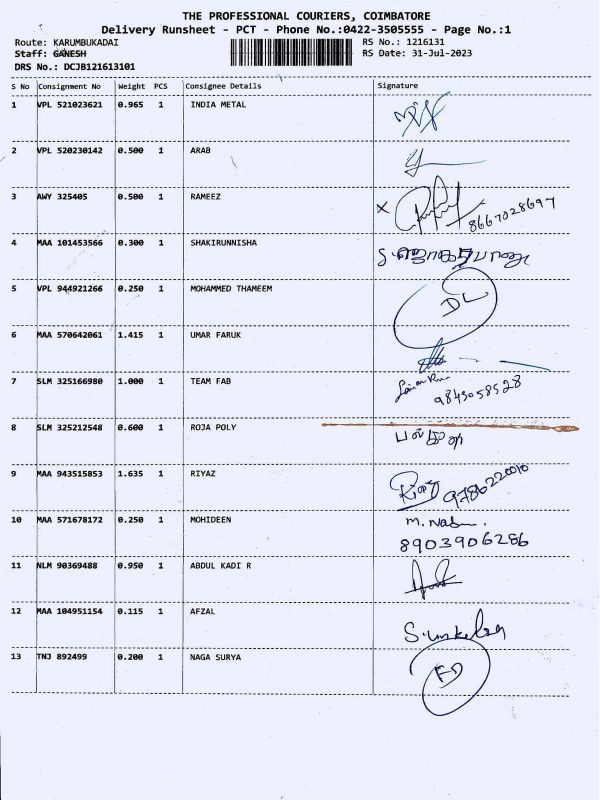 THE PROFESSIONAL COURIERS, COIMBATORE
Delivery Runsheet - PCT - Phone No.:0422-3505555 - Page No.:1
Route: KARUMBUKADAI RS No.: 1216131
Staff: GANESH RS Date: 31-Jul-2023
DRS No.: DCJB121613101
S No Consignment No Weight PCS Consignee Details Signature
1 VPL 521023621 0.965 1 INDIA METAL
2 VPL 520230142 0.500 1 ARAB
3 AWY 325405 0.500 1 RAMEEZ
8667028697
4 MAA 101453566 0.300 1 SHAKIRUNNISHA
5 VPL 944921266 0.250 1 MOHAMMED THAMEEM DL
6 MAA 570642061 1.415 1 UMAR FARUK
7 SLM 325166980 1.000 1 TEAM FAB
9843058528
8 SLM 325212548 0.600 1 ROJA POLY
9 MAA 943515853 1.635 1 RIYAZ
9786220010
10 MAA 571678172 0.250 1 MOHIDEEN
8903906286
11 NLM 90369488 0.950 1 ABDUL KADI R
12 MAA 104951154 0.115 1 AFZAL
13 TNJ 892499 0.200 1 NAGA SURYA